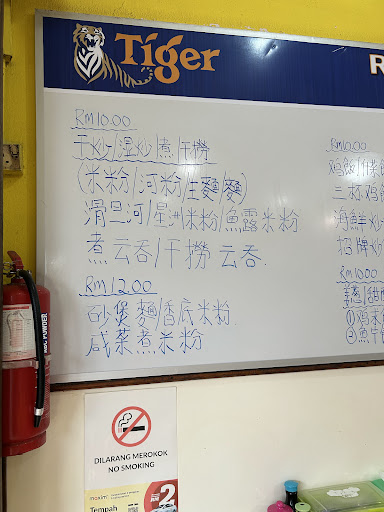 Tiger
R
RM10.00
干炒/湿炒/煮/干撈
(米粉/河粉/生麵/麵)
滑旦河/星洲米粉/魚露米粉
煮云吞/干撈云吞
RM12.00
砂煲麵/香底米粉
咸菜煮米粉
RM10.00
鸡飯/
三杯鸡飯
海鮮炒
招牌炒
RM10.00
①鸡
②魚
DILARANG MEROKOK
NO SMOKING
maxim
Tempah
RM2
POWDER